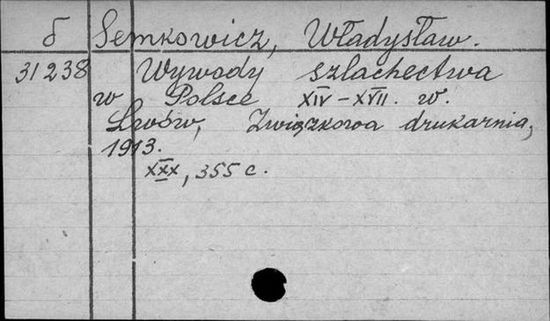 б Semkowicz, Władysław.
31238 Wywody szlachectwa
w Polsce XIV-XVII. w.
Lwów, Związkowa drukarnia,
1913.
XXX, 355 c.